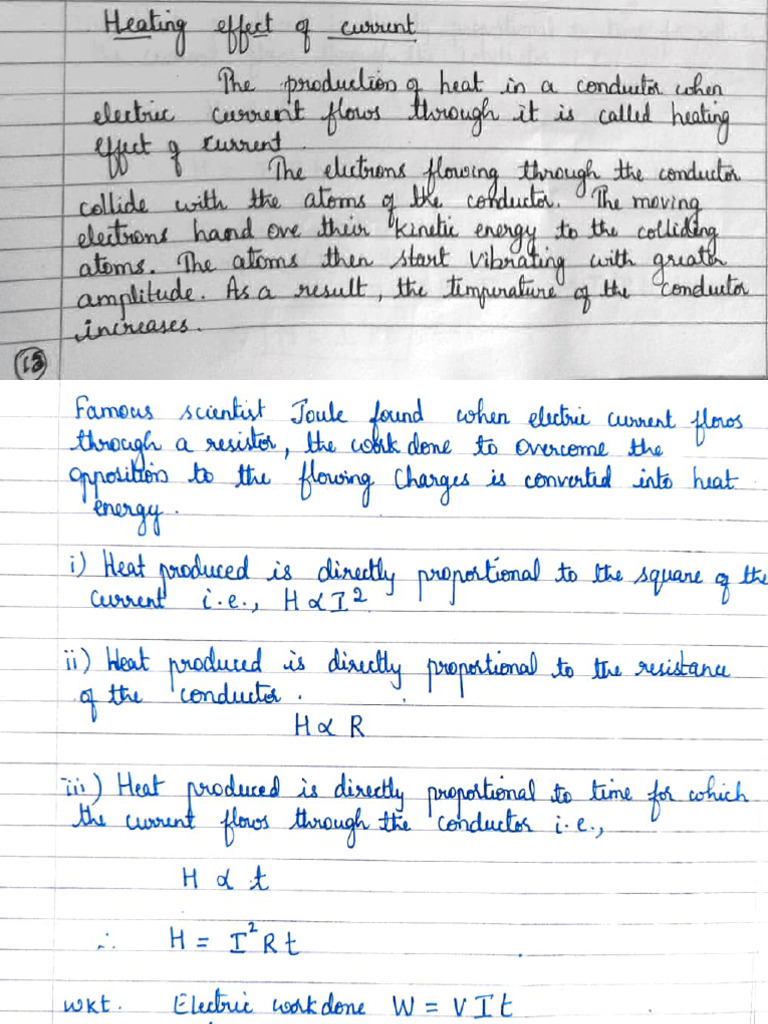 Heating effect of current
The production of heat in a conductor when
electric current flows through it is called heating
effect of current.
The electrons flowing through the conductor
collide with the atoms of the conductor. The moving
electrons hand ove their kinetic energy to the colliding
atoms. The atoms then start vibrating with greater
amplitude. As a result, the temperature of the conductor
increases.
13
Famous scientist Joule found when electric current flows
through a resistor, the work done to overcome the
opposition to the flowing charges is converted into heat
energy.
i) Heat produced is directly proportional to the square of the
current i.e., H ∝ I²
ii) Heat produced is directly proportional to the resistance
of the conductor.
H ∝ R
iii) Heat produced is directly proportional to time for which
the current flows through the conductor i.e.,
H ∝ t
∴ H = I²Rt
wkt. Electric work done W = VIt